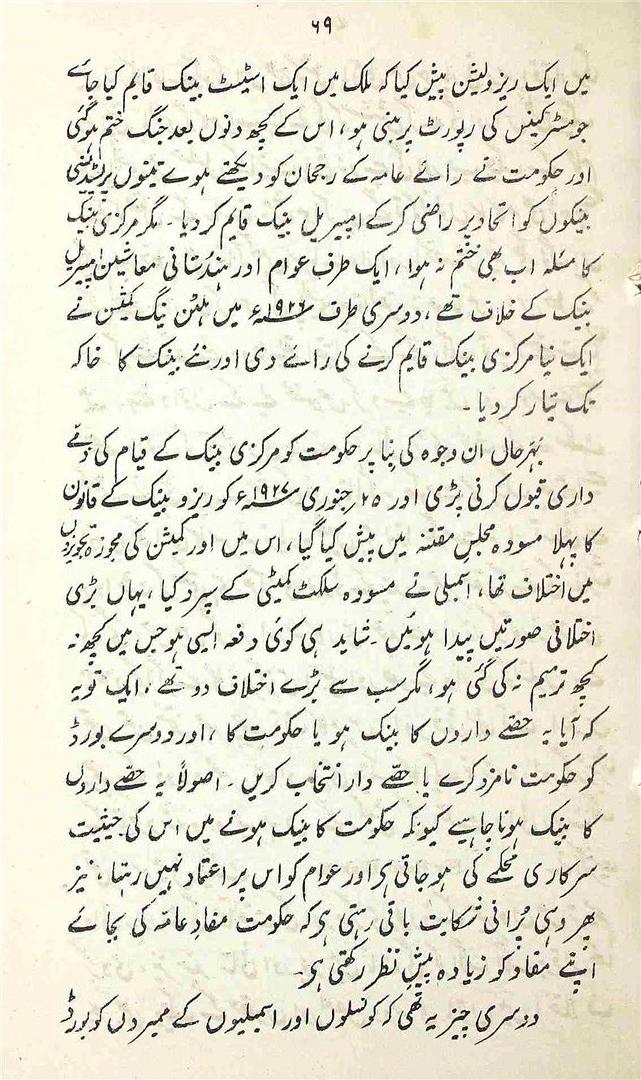 ۶۹
میں ایک ریزولیشن پیش کیا کہ ملک میں ایک اسٹیٹ بینک قایم کیا جاے
جو مسٹر کینس کی رپورٹ پر مبنی ہو، اس کے کچھ دنوں بعد جنگ ختم ہوگئی
اور حکومت نے رائے عامہ کے رجحان کو دیکھتے ہوے تینوں پریسیڈنسی
بینکوں کو اتحاد پر راضی کرکے امپیریل بینک قایم کردیا۔ مگر مرکزی بینک
کا مسئلہ اب بھی ختم نہ ہوا، ایک طرف عوام اور ہندستانی معاشین امپیریل
بینک کے خلاف تھے، دوسری طرف ۱۹۲۶ء میں ہلٹن ینگ کمیشن نے
ایک نیا مرکزی بینک قایم کرنے کی رائے دی اور نئے بینک کا خاکہ
تک تیار کردیا۔
بہرحال ان وجوہ کی بنا پر حکومت کو مرکزی بینک کے قیام کی ذمے
داری قبول کرنی پڑی اور ۲۵؍جنوری ۱۹۲۷ء کو ریزو بینک کے قانون
کا پہلا مسودہ مجلس مقننہ میں پیش کیا گیا، اس میں اور کمیشن کی مجوزہ تجویزوں
میں اختلاف تھا، اسمبلی نے مسودہ سلکٹ کمیٹی کے سپرد کیا، یہاں بڑی
اختلافی صورتیں پیدا ہوئیں۔ شاید ہی کوئی دفعہ ایسی ہو جس میں کچھ نہ
کچھ ترمیم نہ کی گئی ہو، مگر سب سے بڑے اختلاف دو تھے، ایک تو یہ
کہ آیا یہ حصّے داروں کا بینک ہو یا حکومت کا، اور دوسرے بورڈ
کو حکومت نامزد کرے یا حصّے دار انتخاب کریں۔ اصولاً یہ حصّے داروں
کا بینک ہونا چاہیے کیونکہ حکومت کا بینک ہونے میں اس کی حیثیت
سرکاری محکمے کی ہو جاتی ہی اور عوام کو اس پر اعتماد نہیں رہتا، نیز
پھر وہی پُرانی شکایت باقی رہتی ہی کہ حکومت مفادِ عامّہ کی بجائے
اپنے مفاد کو زیادہ پیشِ نظر رکھتی ہی۔
دوسری چیز یہ تھی کہ کونسلوں اور اسمبلیوں کے ممبروں کو بورڈ